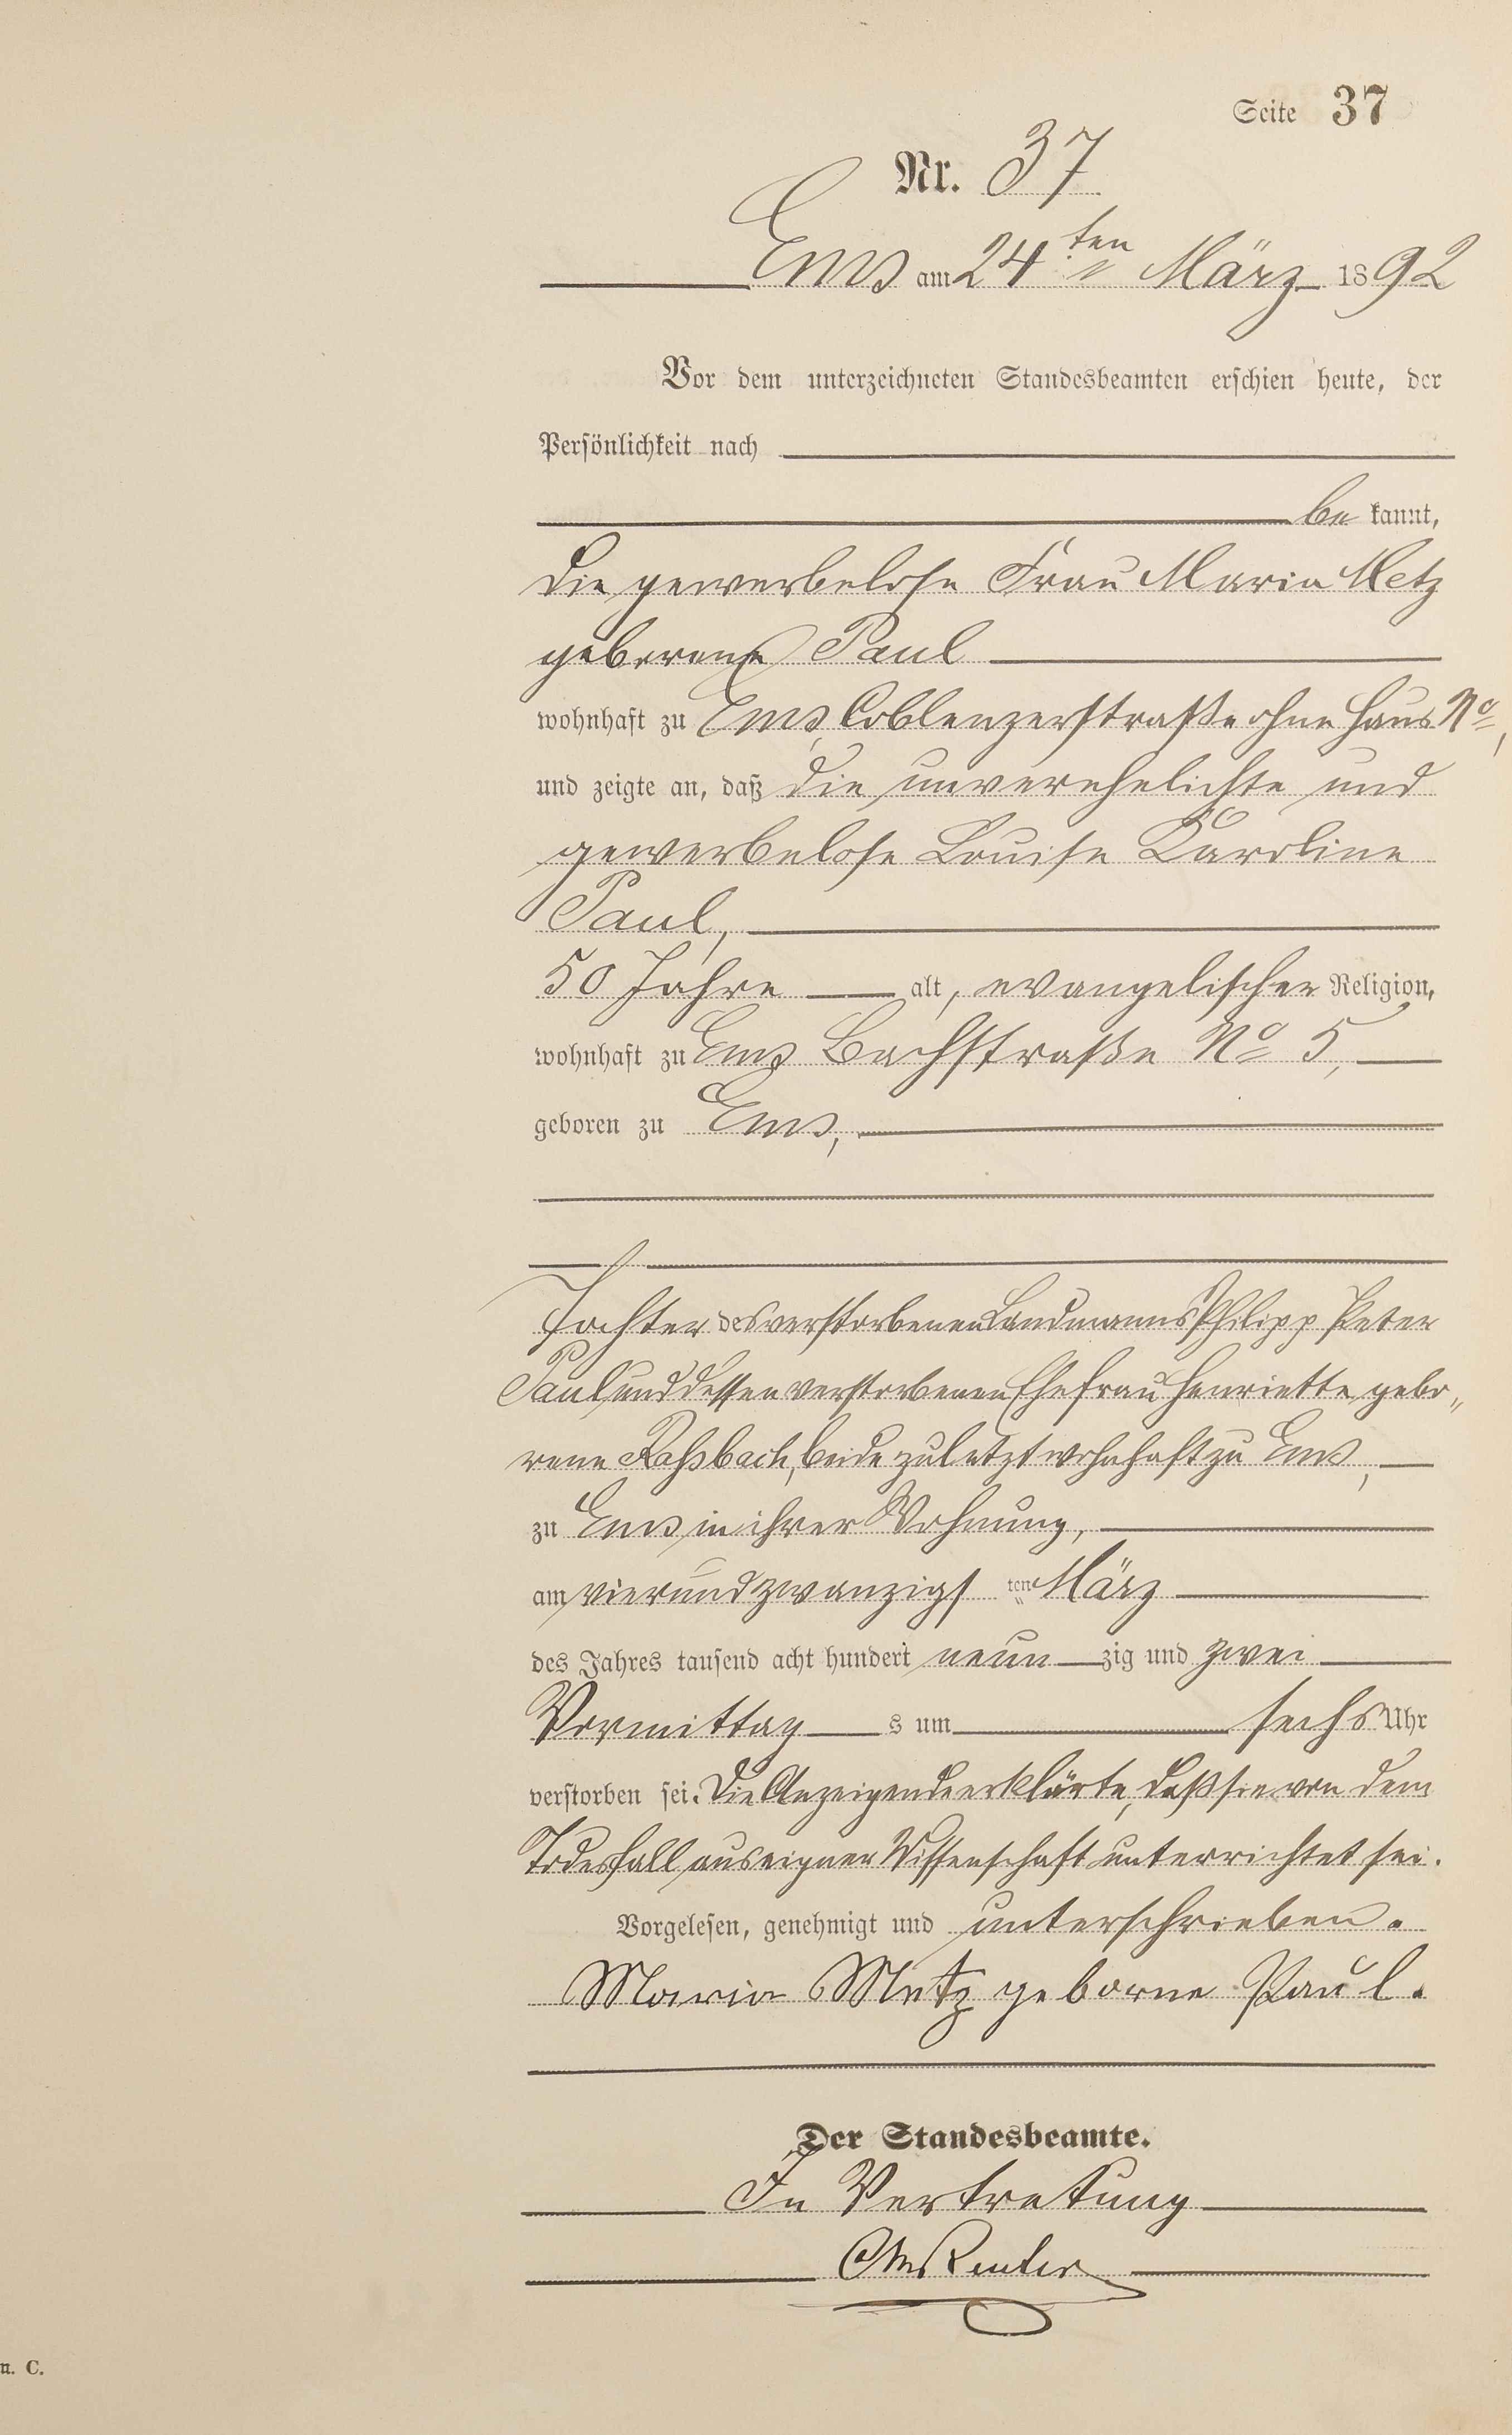 Seite 37
Nr. 37
Ems am 24ten März 1892
Vor dem unterzeichneten Standesbeamten erschien heute, der
Persönlichkeit nach
be kannt,
die gewerbelose Frau Maria Metz
geborene Paul
wohnhaft zu Ems, Coblenzerstraße ohne Haus No,
und zeigte an, daß die unverehelichte und
gewerbelose Louise Karoline
Paul,
50 Jahre alt, evangelischer Religion,
wohnhaft zu Ems Bachstraße No 5,
geboren zu Ems,
Tochter des verstorbenen Landmanns Philipp Peter
Paul und dessen verstorbenen Ehefrau Henriette gebo„
rene Raßbach, beide zuletzt wohnhaft zu Ems,
zu Ems in ihrer Wohnung,
am vierundzwanzigs ten März
des Jahres tausend acht hundert neun zig und zwei
Vormittag s um sechs Uhr
verstorben sei. Die Anzeigende erklärte, daß sie von dem
Todesfall aus eigner Wissenschaft unterrichtet sei.
Vorgelesen, genehmigt und unterschrieben.
Maria Metz geborne Paul.
Der Standesbeamte.
In Vertretung
Reuter
n. C.